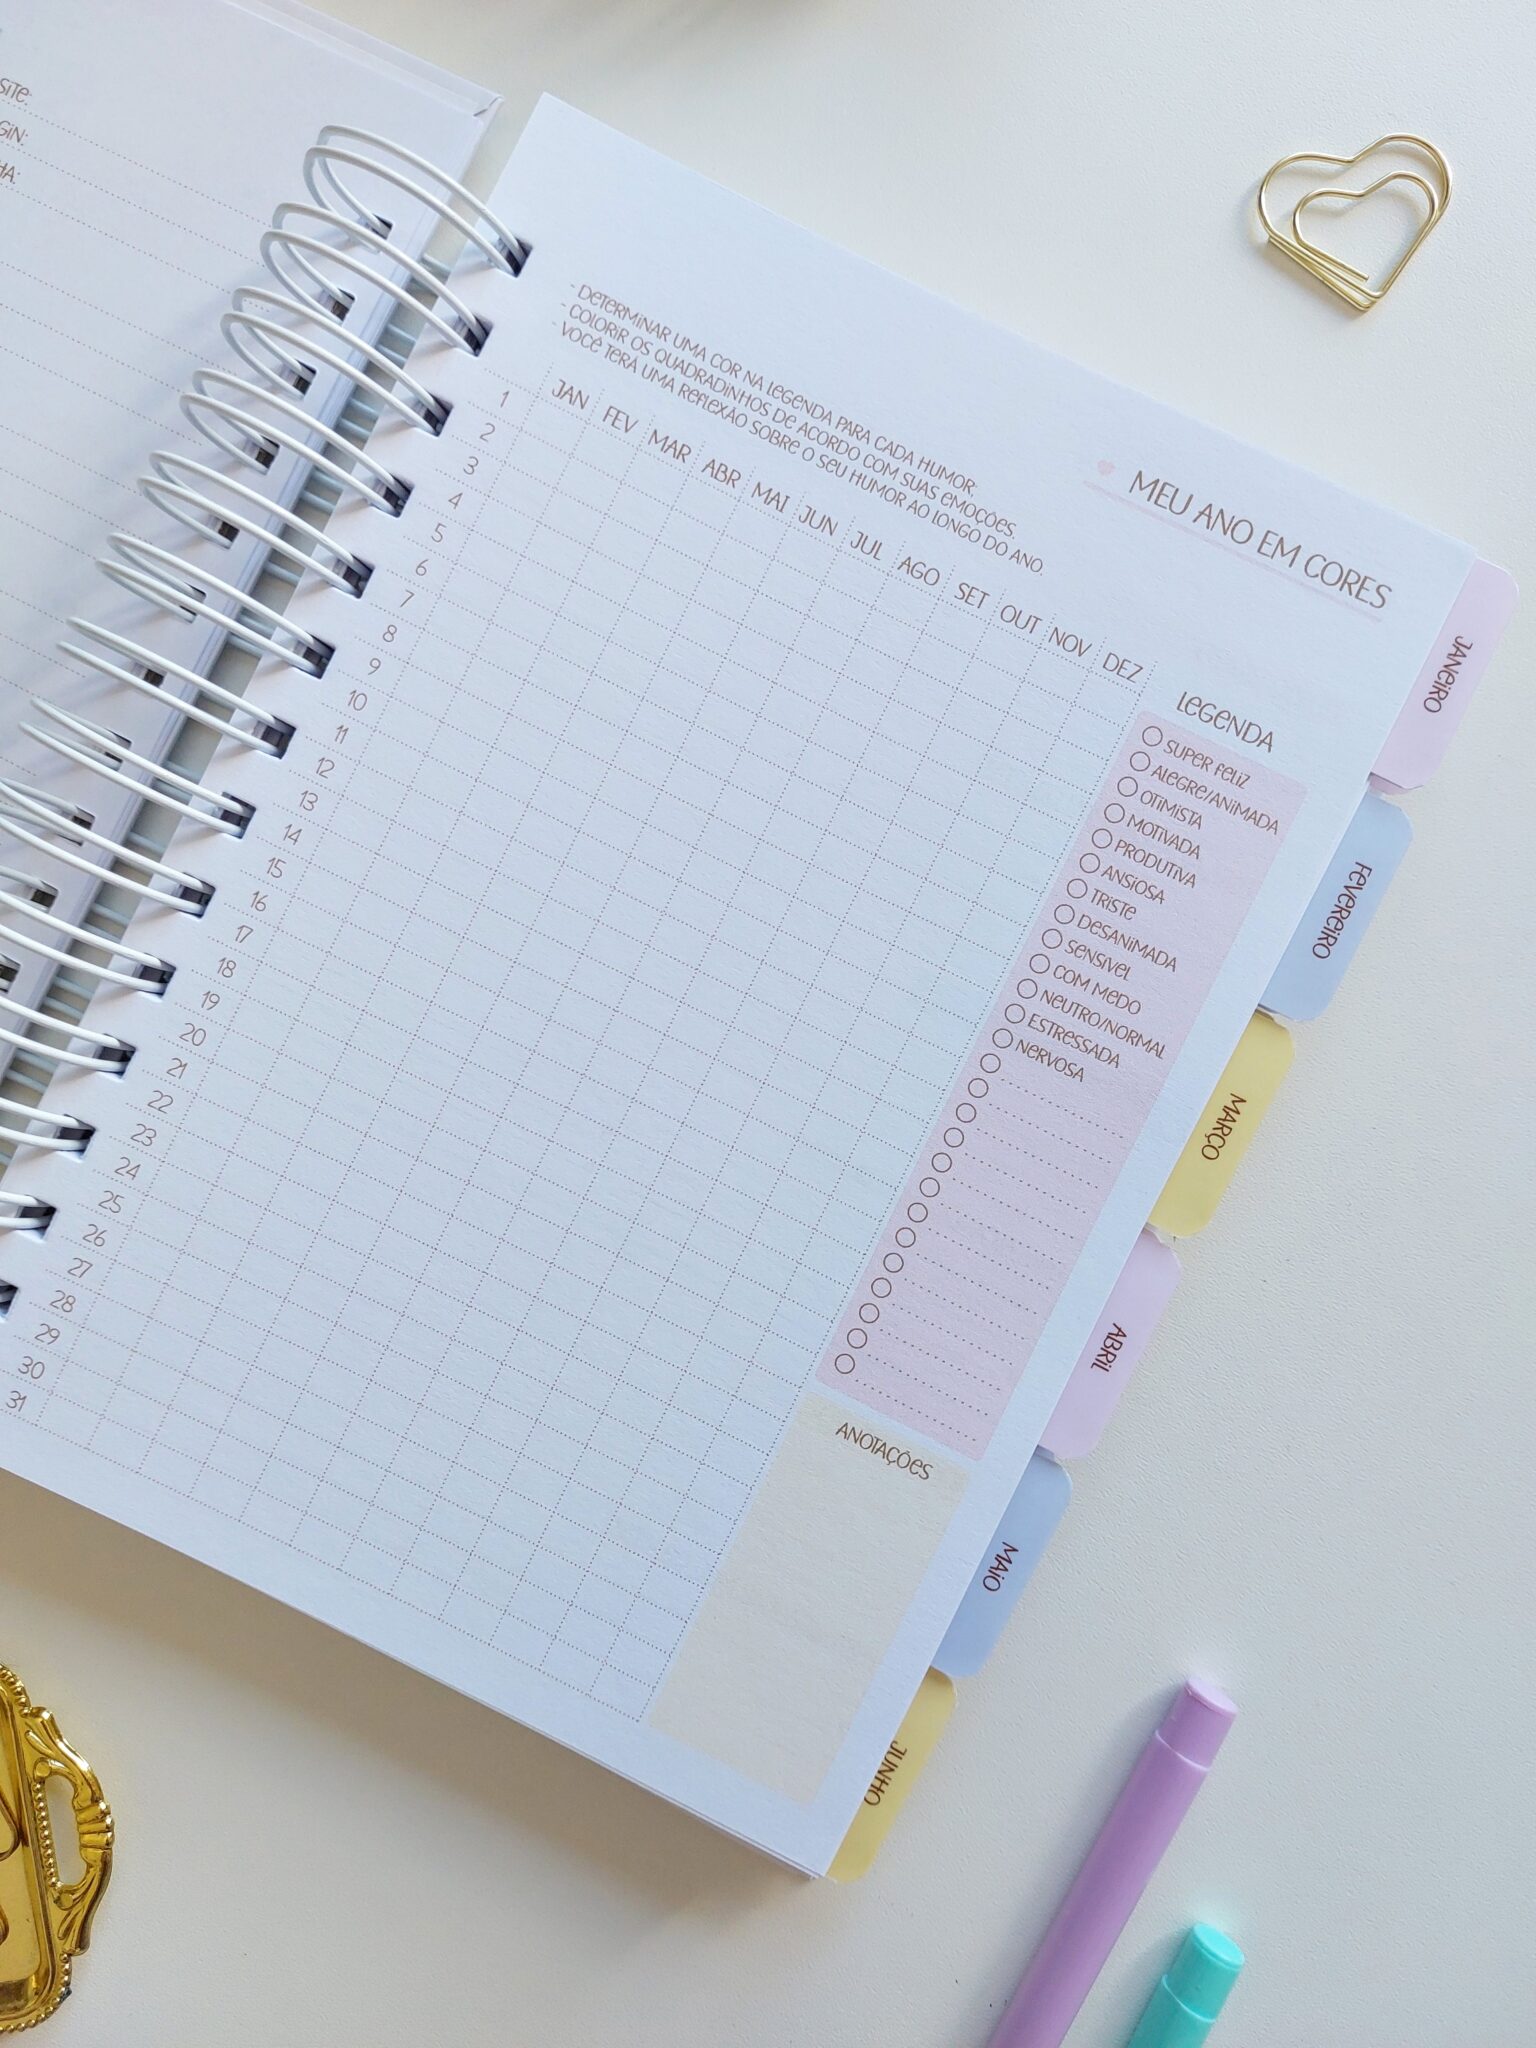 SITE:
MEU ANO EM CORES
- DETERMINAR UMA COR NA LEGENDA PARA CADA HUMOR.
- COLORIR OS QUADRADINHOS DE ACORDO COM SUAS EMOÇÕES.
- VOCÊ TERÁ UMA REFLEXÃO SOBRE O SEU HUMOR AO LONGO DO ANO.
JAN FEV MAR ABR MAI JUN JUL AGO SET OUT NOV DEZ
1
2
3
4
5
6
7
8
9
10
11
12
13
14
15
16
17
18
19
20
21
22
23
24
25
26
27
28
29
30
31
LEGENDA
SUPER FELIZ
ALEGRE/ANIMADA
OTIMISTA
MOTIVADA
PRODUTIVA
ANSIOSA
TRISTE
DESANIMADA
SENSIVEL
COM MEDO
NEUTRO/NORMAL
ESTRESSADA
NERVOSA
ANOTAÇÕES
JANEIRO
FEVEREIRO
MARÇO
ABRIL
MAIO
JUNHO